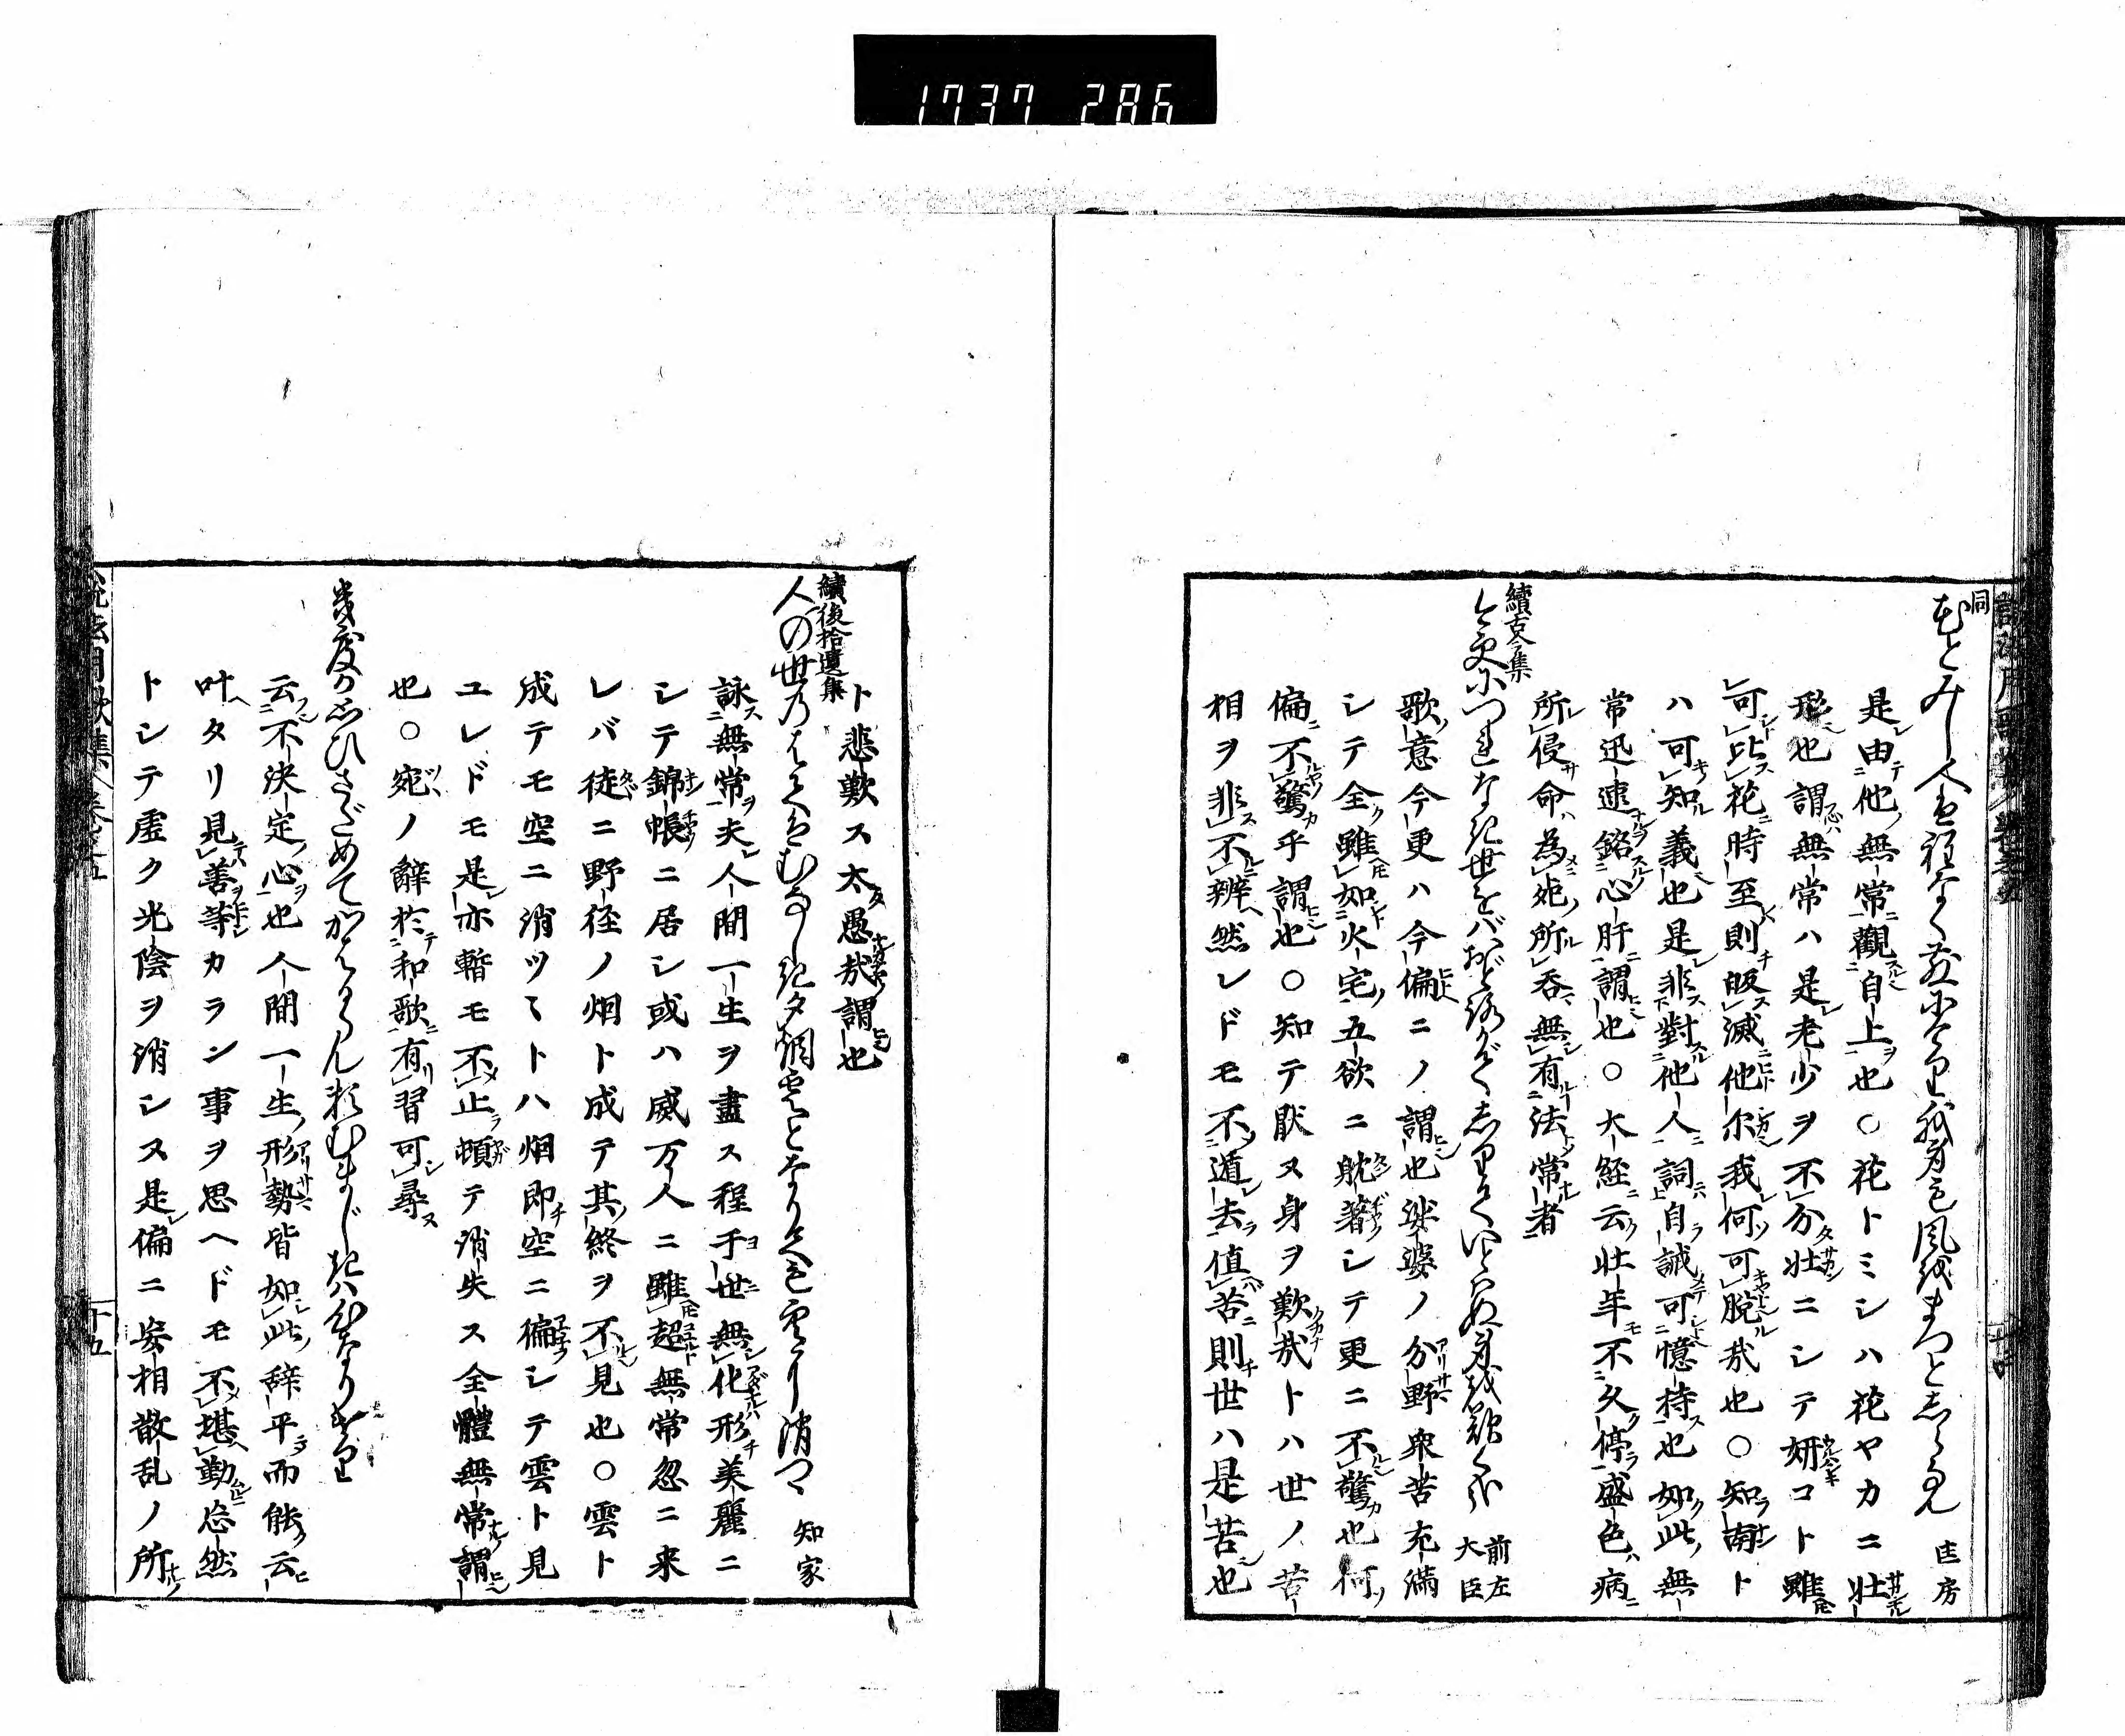 1737 286
同
花とみし人は程なく花ちりて我身も風をまつとしらなん 匡房
是由他無常觀自上也○花トミシハ花ヤカニ壮
形也謂無常ハ是老少ヲ不分壮ニシテ妍コト雖
可比花時至則皈滅他尓我何可脱哉也○知南ト
ハ可知義也是非對他人詞自誠可憶持也如此無
常迅速銘心肝謂也○大経ニ云壮年不久停盛色病
所侵命為死所呑無有法常者
續古今集
今更につれなき世をバおどろかずしりていとはぬ身を歎く哉 前左大臣
歌意今更ハ今偏ニノ謂也娑婆ノ分野衆苦充満
シテ全雖如火宅五欲ニ躭著シテ更ニ不驚也何
偏不驚乎謂也○知テ猒ヌ身ヲ歎哉トハ世ノ苦
相ヲ非不辨然レドモ不遁去値苦則世ハ是苦也
ト悲歎ス太愚哉謂也
續後拾遺集
人の世のならひむなしき夕烟雲となりても空に消つゝ 知家
詠無常夫人間一生ヲ盡ス程于世無化形美麗ニ
シテ錦帳ニ居シ或ハ威万人ニ雖超無常忽ニ来
レバ徒ニ野径ノ烟ト成テ其終ヲ不見也○雲ト
成テモ空ニ消ツヽトハ烟即空ニ偏シテ雲ト見
ユレドモ是亦暫モ不止頓テ消失ス全體無常謂
也○宛ノ辭於和歌有習可尋
幾度か思ひさだめてかはるらん頼むまじきは心なりけり
云不決定心也人間一生形勢皆如此辞平而能云
叶タリ見善等カラン事ヲ思ヘドモ不堪勤忩然
トシテ虚ク光陰ヲ消シス是偏ニ妄相散乱ノ所
説法用歌集 巻之五 十五